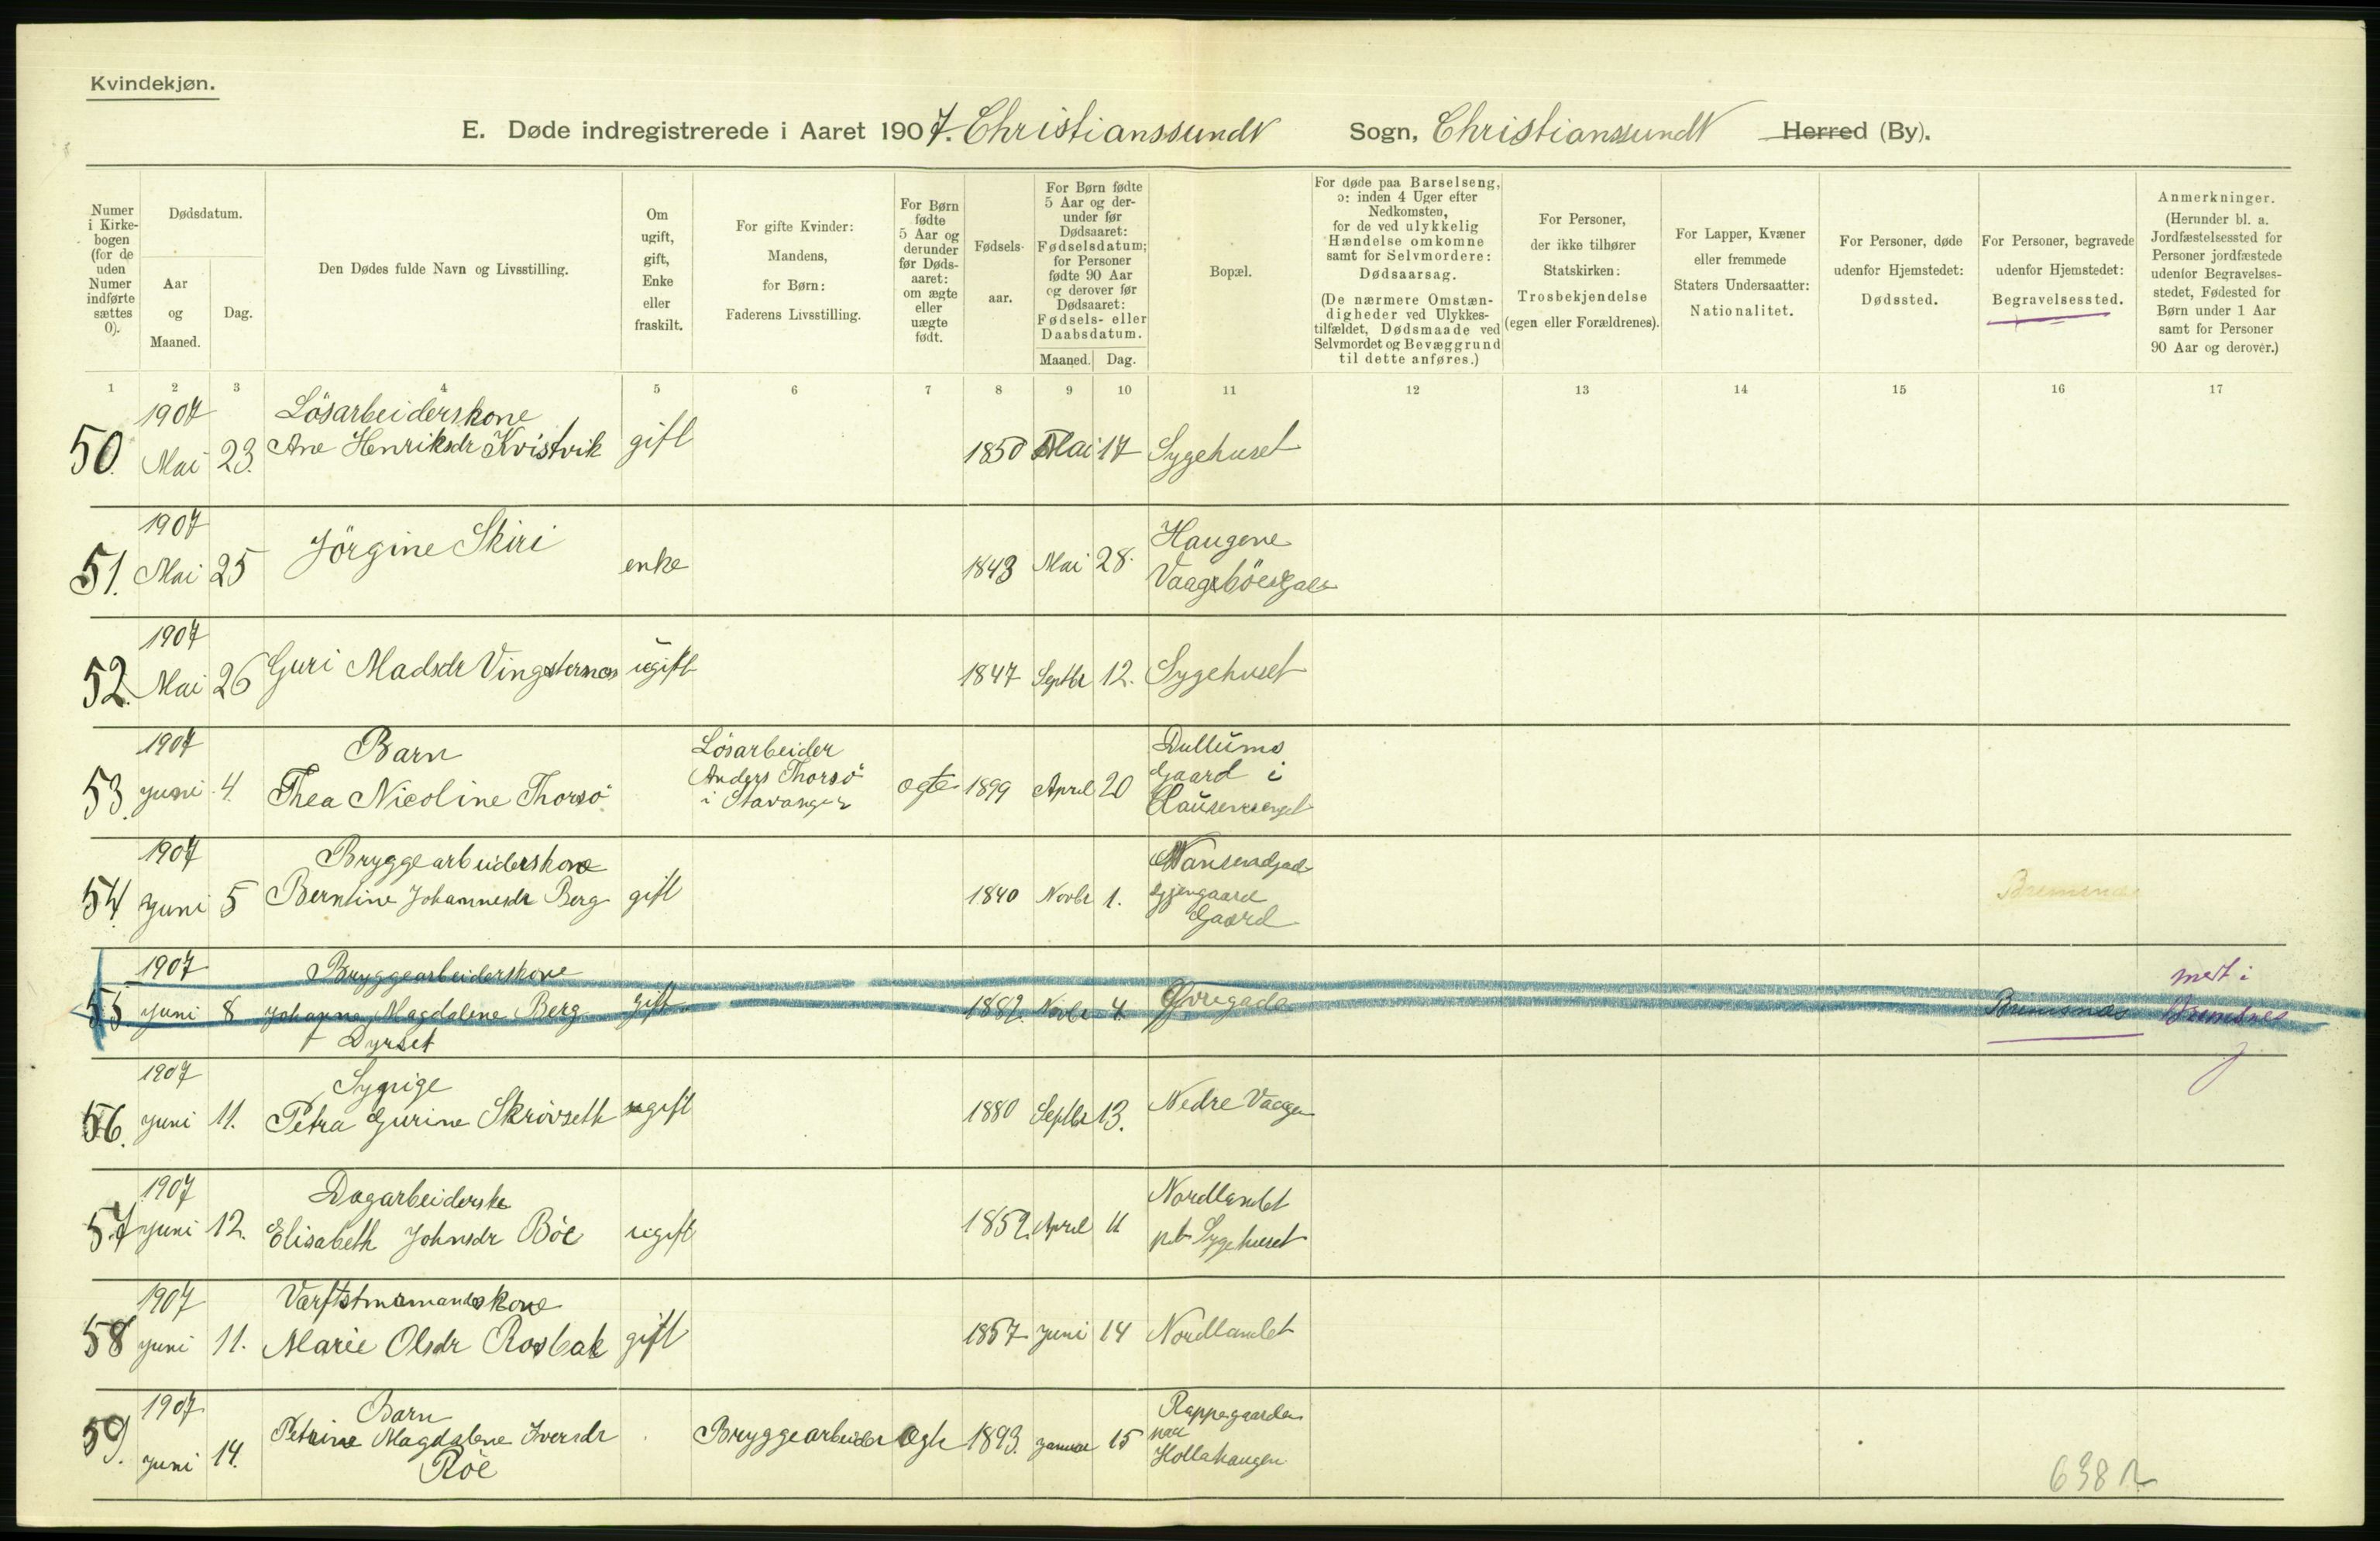 Kvindekjøn.
E. Døde indregistrerede i Aaret 1907. Christianssund N Sogn, Christianssund N Herred (By).
Numer i Kirke-bogen (for de uden Numer indførte sættes 0).
Dødsdatum.
Aar og Maaned.
Dag.
Den Dødes fulde Navn og Livsstilling.
Om ugift, gift, Enke eller fraskilt.
For gifte Kvinder: Mandens, for Børn: Faderens Livsstilling.
For Børn fødte 5 Aar og derunder før Døds-aaret: om ægte eller uægte født.
Fødsels-aar.
For Børn fødte 5 Aar og der-under før Dødsaaret: Fødselsdatum; for Personer fødte 90 Aar og derover før Dødsaaret: Fødsels- eller Daabsdatum.
Maaned. Dag.
Bopæl.
For døde paa Barselseng, ɔ: inden 4 Uger efter Nedkomsten, for de ved ulykkelig Hændelse omkomne samt for Selvmordere: Dødsaarsag.
(De nærmere Omstæn-digheder ved Ulykkes-tilfældet, Dødsmaade ved Selvmordet og Bevæggrund til dette anføres.)
For Personer, der ikke tilhører Statskirken: Trosbekjendelse (egen eller Forældrenes).
For Lapper, Kvæner eller fremmede Staters Undersaatter: Nationalitet.
For Personer, døde udenfor Hjemstedet: Dødssted.
For Personer, begravede udenfor Hjemstedet: Begravelsessted.
Anmerkninger. (Herunder bl. a. Jordfæstelsessted for Personer jordfæstede udenfor Begravelses-stedet, Fødested for Børn under 1 Aar samt for Personer 90 Aar og derover.)
1 2 3 4 5 6 7 8 9 10 11 12 13 14 15 16 17
1907 Lösarbeiderskone
50. Mai 23. Ane Henriksdr Kvistvik gift 1850 Mai 17 Sygehuset
1907
51. Mai 25 Jörgine Skiri enke 1843 Mai 28. Haugene
1907
52. Mai 26 Guri Madsdr Vingsternes ugift 1847 Septbr 12. Sygehuset
1907 Barn Lösarbeider Dullums
53. Juni 4. Thea Nicoline Thorsö Anders Thorsö ægte 1899 April 20 Gaard i
i Stavanger Clausenenget
1907 Bryggearbeiderskone
54. Juni 5 Berntine Johannesdr Berg gift 1840 Novbr 1. Bremsnes
Gaard
1907 Bryggearbeiderskone mert i
55 Juni 8 Johanna Magdalene Berg gift 1882. Novbr 4. Øvregade Bremsnes Bremsnes
Dyrset
1907 Sypige
56. Juni 11. Petra Gurine Skrövseth ugift 1880 Septbr 13. Nedre Vaagen
1907 Dagarbeiderske Nordlandet
57 Juni 12. Elisabeth Johnsdr Böe ugift 1852. April 11 pt Sygehuset
1907
58 Juni 11. Marie Olsdr Rosbak gift 1857 Juni 14 Nordlandet
1907 Barn Rappegaarden
59. Juni 14. Petrine Magdalene Iversdr Bryggearbeider ægte 1893. Januar 15 paa
Röe Hollahaugen
638